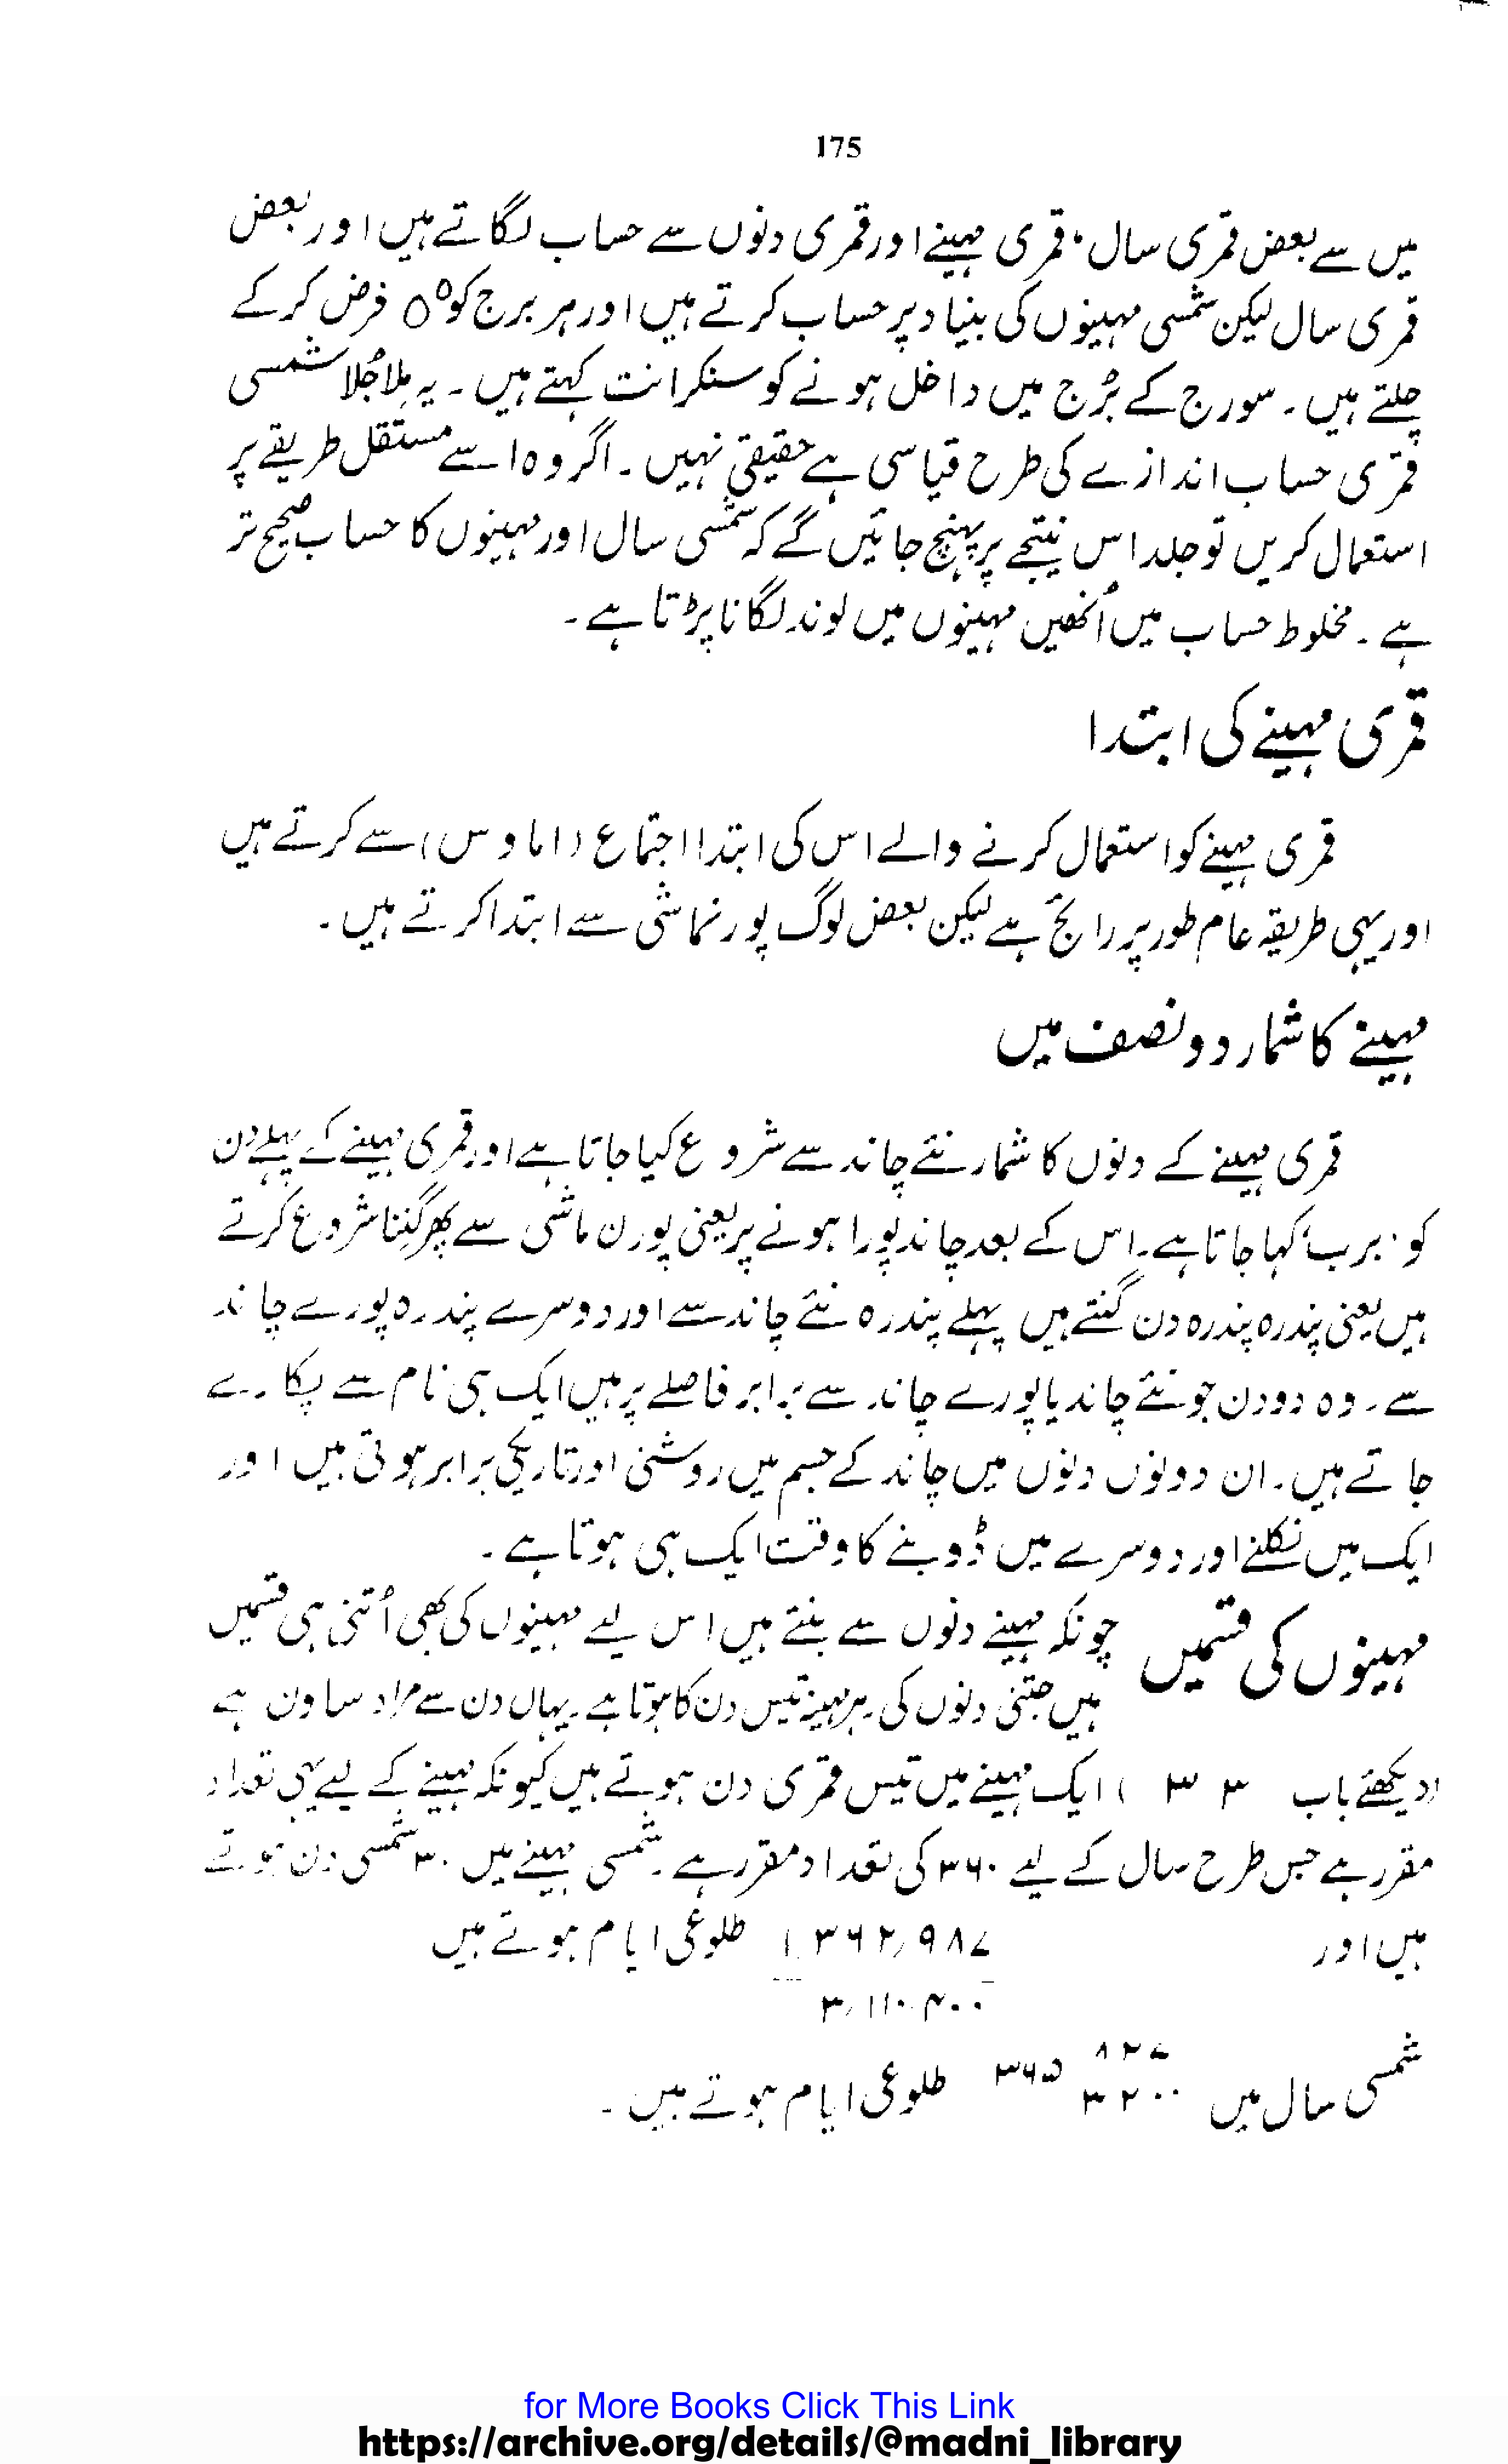 175
میں سے بعض قمری سال، قمری مہینے اور قمری دنوں سے حساب لگاتے ہیں اور بعض
قمری سال لیکن شمسی مہینوں کی بنیاد پر حساب کرتے ہیں اور ہر برج کو 0° فرض کر کے
چلتے ہیں۔ سورج کے بُرج میں داخل ہونے کو سنکرانت کہتے ہیں۔ یہ مِلا جُلا شمسی
قمری حساب اندازے کی طرح قیاسی ہے حقیقی نہیں۔ اگر وہ اسے مستقل طریقے پر
استعمال کریں تو جلد اس نتیجے پر پہنچ جائیں گے کہ شمسی سال اور مہینوں کا حساب صحیح تر
ہے۔ مخلوط حساب میں اُنھیں مہینوں میں لوند لگانا پڑتا ہے۔
قمری مہینے کی ابتدا
قمری مہینے کو استعمال کرنے والے اس کی ابتدا اجتماع (اماوس) سے کرتے ہیں
اور یہی طریقہ عام طور پر رائج ہے لیکن بعض لوگ پورنماشی سے ابتدا کرتے ہیں۔
مہینے کا شمار دو نصف میں
قمری مہینے کے دنوں کا شمار نئے چاند سے شروع کیا جاتا ہے اور قمری مہینے کے پہلے دن
کو 'برب' کہا جاتا ہے۔ اس کے بعد چاند پورا ہونے پر یعنی پورن ماشی سے پھر گننا شروع کرتے
ہیں یعنی پندرہ پندرہ دن گنتے ہیں پہلے پندرہ نئے چاند سے اور دوسرے پندرہ پورے چاند
سے۔ وہ دو دن جو نئے چاند یا پورے چاند سے برابر فاصلے پر ہیں ایک ہی نام سے پکارے
جاتے ہیں۔ ان دونوں دنوں میں چاند کے جسم میں روشنی اور تاریکی برابر ہوتی ہیں اور
ایک میں نکلنے اور دوسرے میں ڈوبنے کا وقت ایک ہی ہوتا ہے۔
مہینوں کی قسمیں چونکہ مہینے دنوں سے بنتے ہیں اس لیے مہینوں کی بھی اُتنی ہی قسمیں
ہیں جتنی دنوں کی۔ ہر مہینہ تیس دن کا ہوتا ہے۔ یہاں دن سے مراد ساون ہے
(دیکھئے باب ۳۳) ایک مہینے میں تیس قمری دن ہوتے ہیں کیونکہ مہینے کے لیے یہی تعداد
مقرر ہے جس طرح سال کے لیے ۳۶۰ کی تعداد مقرر ہے۔ شمسی مہینے میں ۳۰ شمسی دن ہوتے
ہیں اور ۱۳۶۲,۹۸۷ طلوعی ایام ہوتے ہیں
۳,۱۱۰,۴۰۰
شمسی سال میں ۸۲۷
۳۲۰۰ ۳۶۵ طلوعی ایام ہوتے ہیں۔
for More Books Click This Link
https://archive.org/details/@madni_library